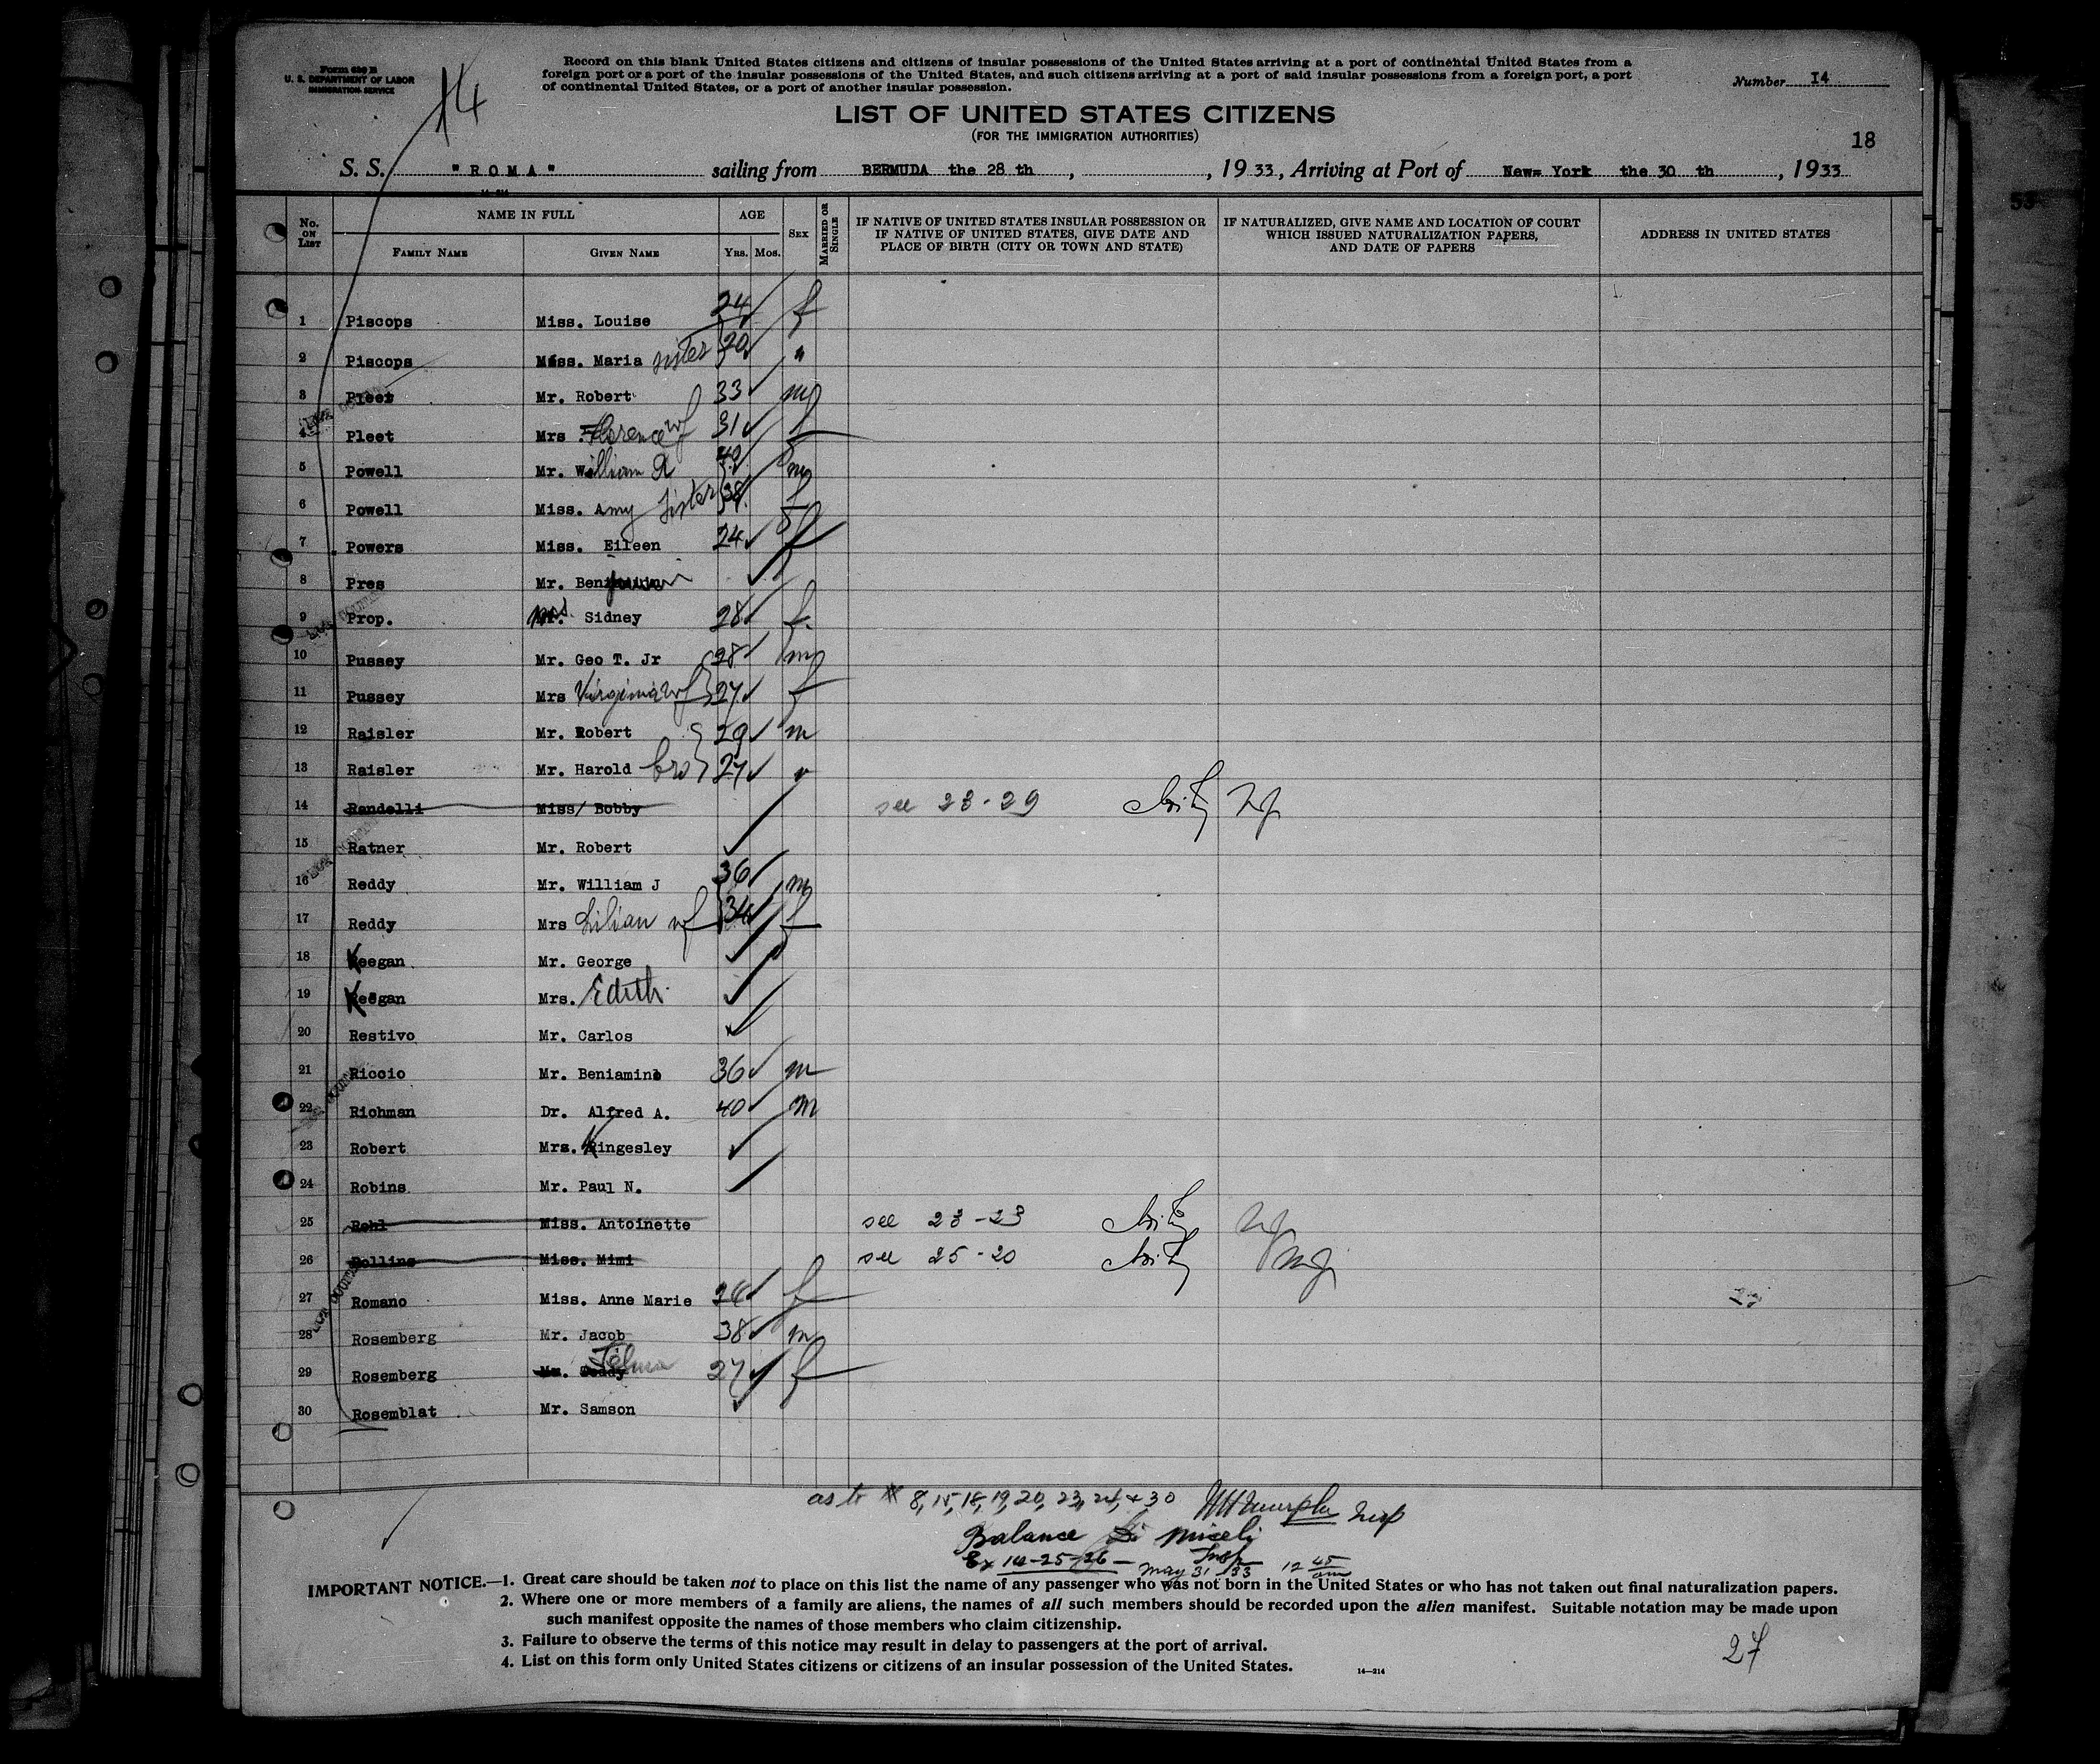 Form 630 B
U. S. DEPARTMENT OF LABOR
IMMIGRATION SERVICE
14
Record on this blank United States citizens and citizens of insular possessions of the United States arriving at a port of continental United States from a
foreign port or a port of the insular possessions of the United States, and such citizens arriving at a port of said insular possessions from a foreign port, a port
of continental United States, or a port of another insular possession.
Number I4
LIST OF UNITED STATES CITIZENS
(FOR THE IMMIGRATION AUTHORITIES)
18
S. S. "ROMA" sailing from BERMUDA the 28 th , , 1933, Arriving at Port of New York the 30 th , 1933
14-214
No. ON LIST NAME IN FULL AGE SEX MARRIED OR SINGLE IF NATIVE OF UNITED STATES INSULAR POSSESSION OR IF NATIVE OF UNITED STATES, GIVE DATE AND PLACE OF BIRTH (CITY OR TOWN AND STATE) IF NATURALIZED, GIVE NAME AND LOCATION OF COURT WHICH ISSUED NATURALIZATION PAPERS, AND DATE OF PAPERS ADDRESS IN UNITED STATES
FAMILY NAME GIVEN NAME YRS. MOS.
1 Piscops Miss. Louise 24 f
2 Piscops Miss. Maria sister 20 "
3 Pleet Mr. Robert 33 m
4 Pleet Mrs. Florence wf 31 f
5 Powell Mr. William A 40 m
6 Powell Miss. Amy Sister 38 f
7 Powers Miss. Eileen 24 f
8 Pres Mr. Benjamin
9 Prop. Mrs. Sidney 28 f.
10 Pussey Mr. Geo T. Jr 28 m
11 Pussey Mrs Virginia wf 27 f
12 Raisler Mr. Robert 29 m
13 Raisler Mr. Harold bro 27 "
14 Randelli Miss/ Bobby see 23-29
15 Ratner Mr. Robert
16 Reddy Mr. William J 36 m
17 Reddy Mrs Lilian wf 34 f
18 Keegan Mr. George
19 Keegan Mrs. Edith
20 Restivo Mr. Carlos
21 Riccio Mr. Beniamino 36 m
22 Richman Dr. Alfred A. 40 m
23 Robert Mrs. Kingesley
24 Robins Mr. Paul N.
25 Rohl Miss. Antoinette see 23-23
26 Rollins Miss. Mimi see 25-20
27 Romano Miss. Anne Marie 26 f
28 Rosemberg Mr. Jacob 38 m
29 Rosemberg Mr. Teddy Telma 27 f
30 Rosemblat Mr. Samson
as to # 8, 15, 18, 19, 20, 23, 24, + 30 Murphy Insp
Balance Di Miceli
Ex 14-25-26 - Insp
May 31 33 12 45 am
IMPORTANT NOTICE.—1. Great care should be taken not to place on this list the name of any passenger who was not born in the United States or who has not taken out final naturalization papers.
2. Where one or more members of a family are aliens, the names of all such members should be recorded upon the alien manifest. Suitable notation may be made upon
such manifest opposite the names of those members who claim citizenship.
3. Failure to observe the terms of this notice may result in delay to passengers at the port of arrival.
4. List on this form only United States citizens or citizens of an insular possession of the United States.
14—214
27